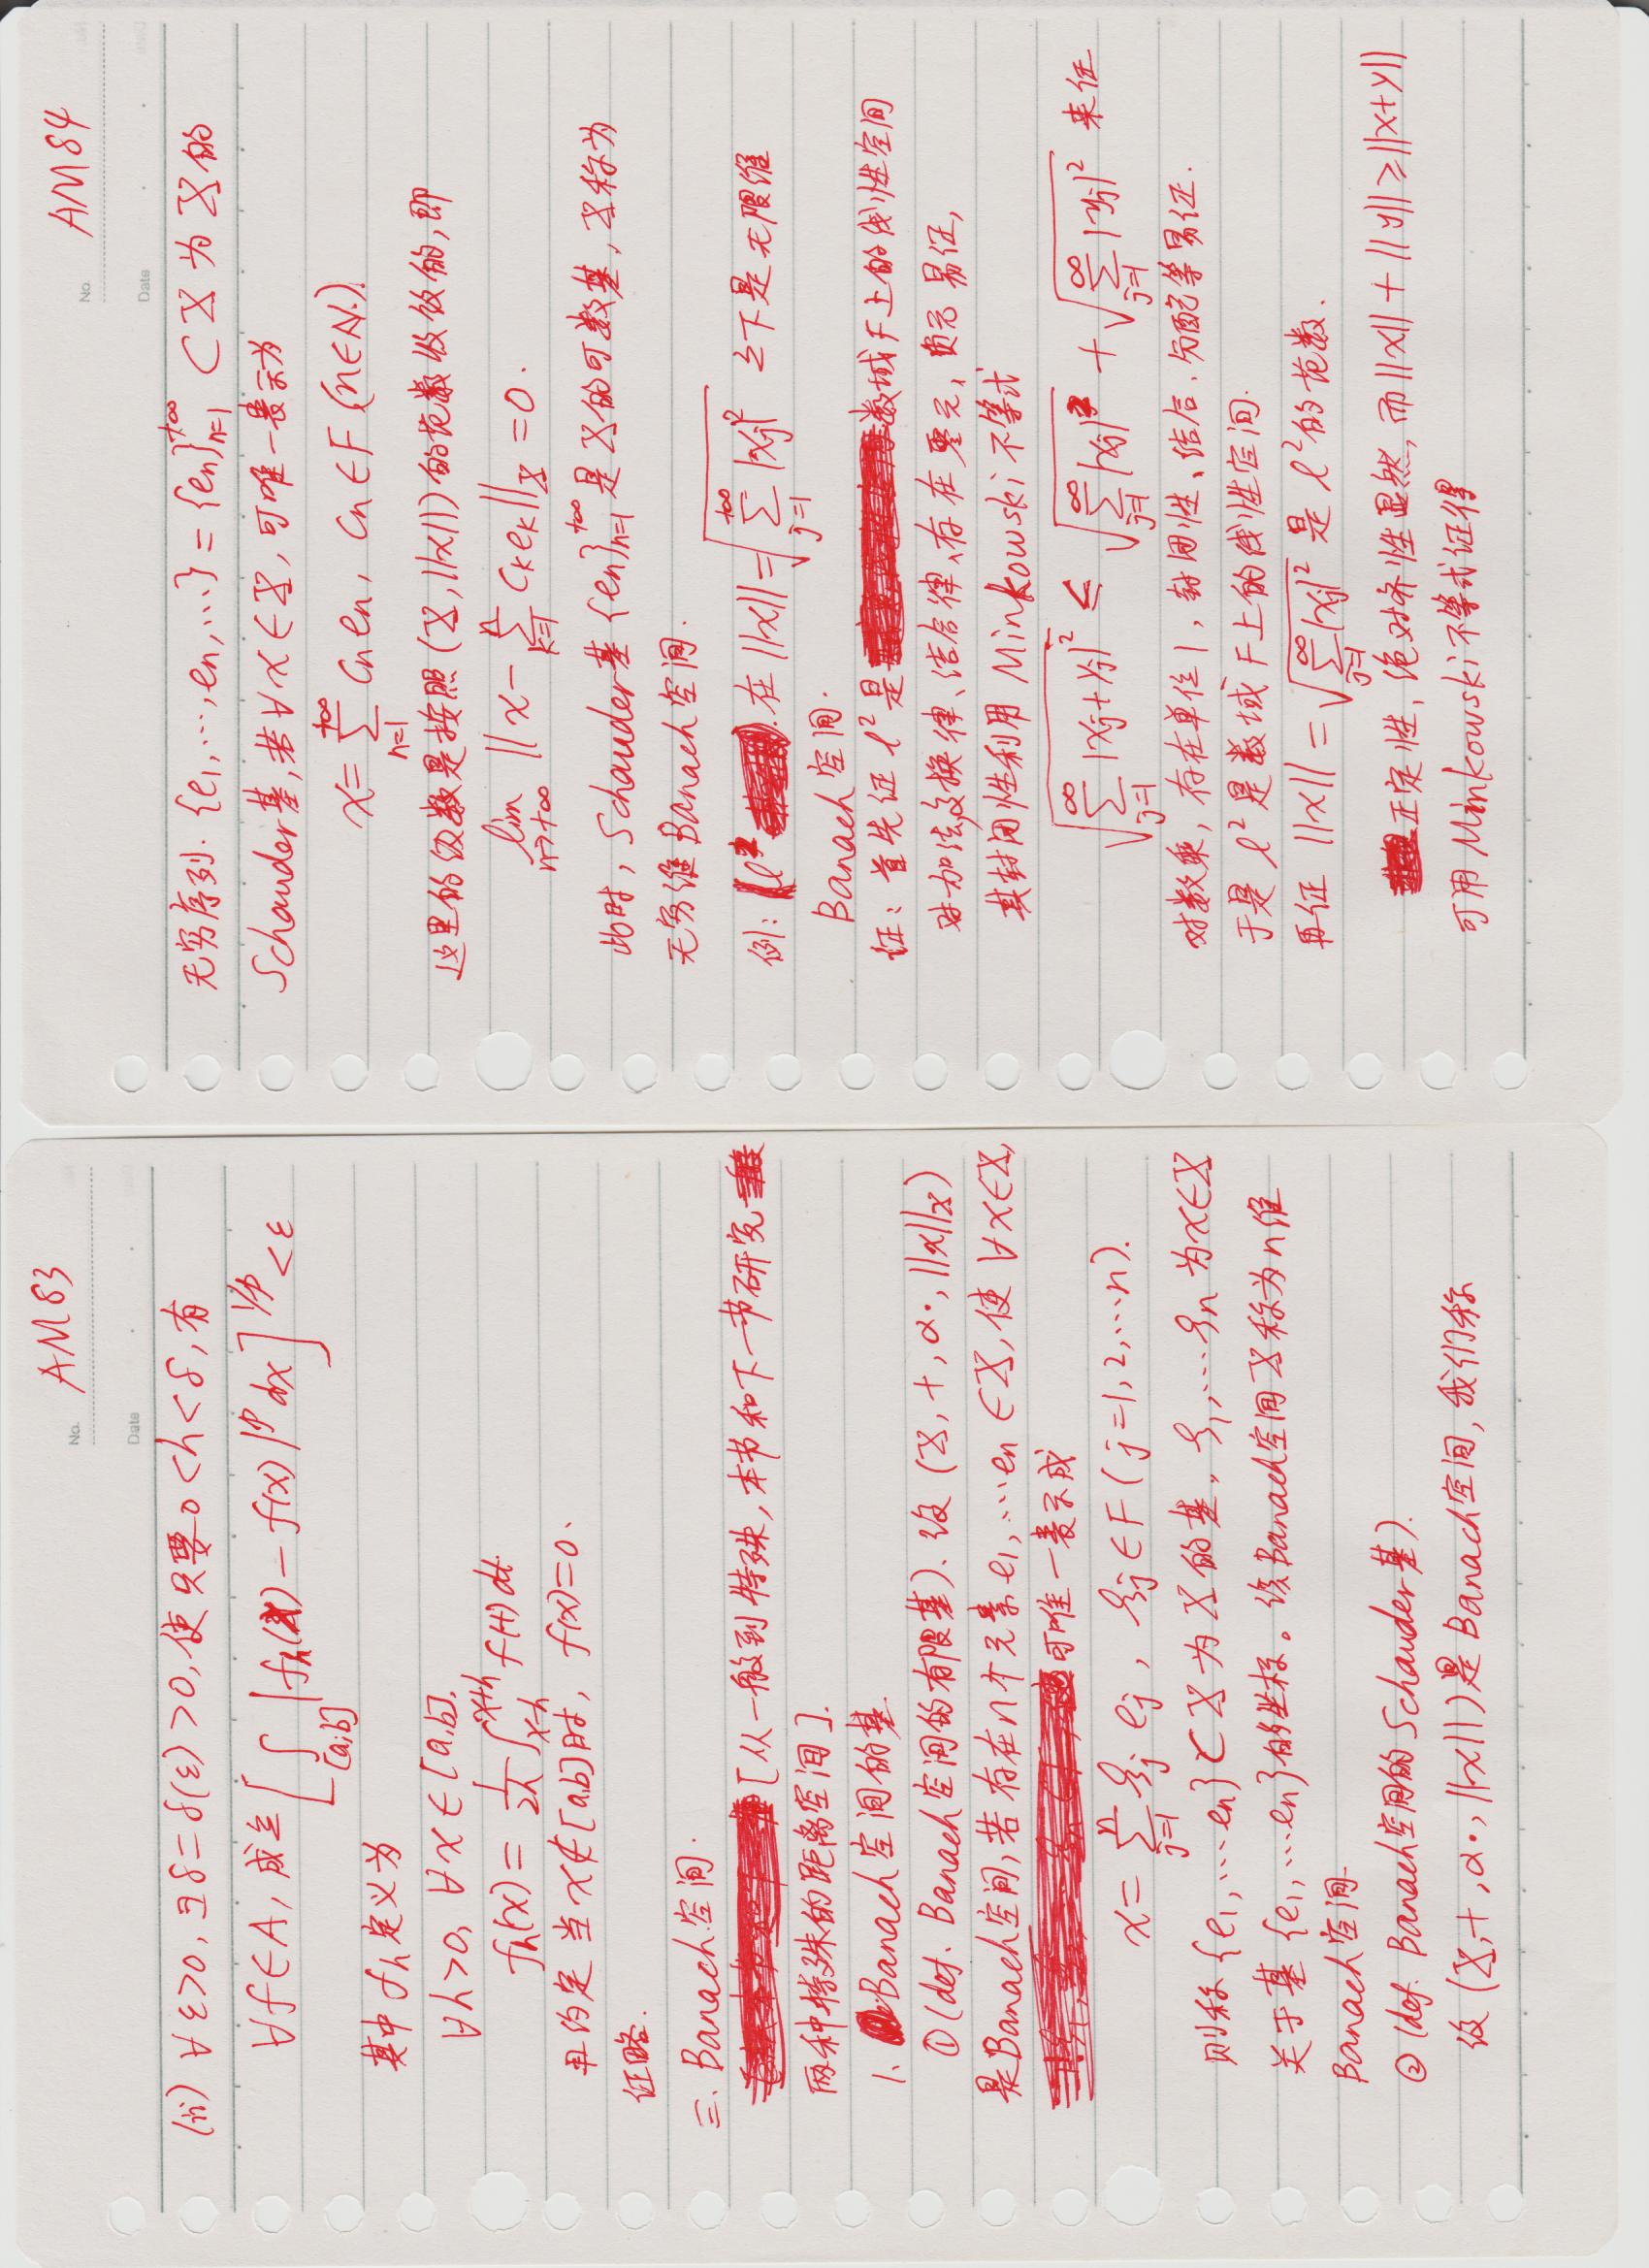 No. AM83
Date
(ii) ∀ε>0, ∃δ=δ(ε)>0, 使只要0<h<δ, 有
∀f∈A, 成立 [∫_{[a,b]} |f_h(x)-f(x)|^p dx]^{1/p} <ε
其中f_h定义为
∀h>0, ∀x∈[a,b],
f_h(x) = 1/2h ∫_{x-h}^{x+h} f(t)dt.
且约定当x∉[a,b]时, f(x)=0.
证略.
三. Banach空间.
[从一般到特殊, 本节和下一节研究
两种特殊的距离空间].
1. Banach空间的基
①(def. Banach空间的有限基). 设 (X, +, α·, ||x||_X)
是Banach空间, 若存在n个元素e₁, …e_n ∈X, 使 ∀x∈X,
可唯一表示成
x= ∑_{j=1}^{n} ξ_j e_j, ξ_j∈F (j=1,2,…n).
则称{e₁, …e_n}⊂X为X的基, ξ₁, …ξ_n 为x∈X
关于基{e₁, …e_n}的坐标。该Banach空间X称为n维
Banach空间.
②(def. Banach空间的Schauder基).
设 (X, +, α·, ||x||)是Banach空间, 我们称
No. AM84
Date
无穷序列. {e₁, …, e_n, …} = {e_n}_{n=1}^{+∞} ⊂X 为X的
Schauder基, 若∀x∈X, 可唯一表示为
x= ∑_{n=1}^{+∞} c_n e_n, c_n∈F (n∈N.).
这里的级数是按照(X, ||x||)的范数收敛的, 即
lim_{n→+∞} ||x- ∑_{k=1}^{n} c_k e_k||_X =0.
此时, Schauder基{e_n}_{n=1}^{+∞}是X的可数基, X称为
无穷维Banach空间.
例: l² 在 ||x|| = √(∑_{j=1}^{+∞} |x_j|²) 之下是无限维
Banach空间.
证: 首先证 l² 是数域F上的线性空间
对加法,交换律、结合律、存在零元, 负元易证,
其封闭性利用Minkowski不等式
√(∑_{j=1}^{∞} |x_j+y_j|²) ≤ √(∑_{j=1}^{∞} |x_j|²) + √(∑_{j=1}^{∞} |y_j|²) 来证
对数乘, 存在单位1, 封闭性、结合、分配等易证.
于是 l² 是数域F上的线性空间.
再证 ||x|| = √(∑_{j=1}^{∞} |x_j|²) 是 l² 的范数.
正定性, 绝对齐性显然, 而||x|| + ||y|| ≥ ||x+y||
可用Minkowski不等式证得